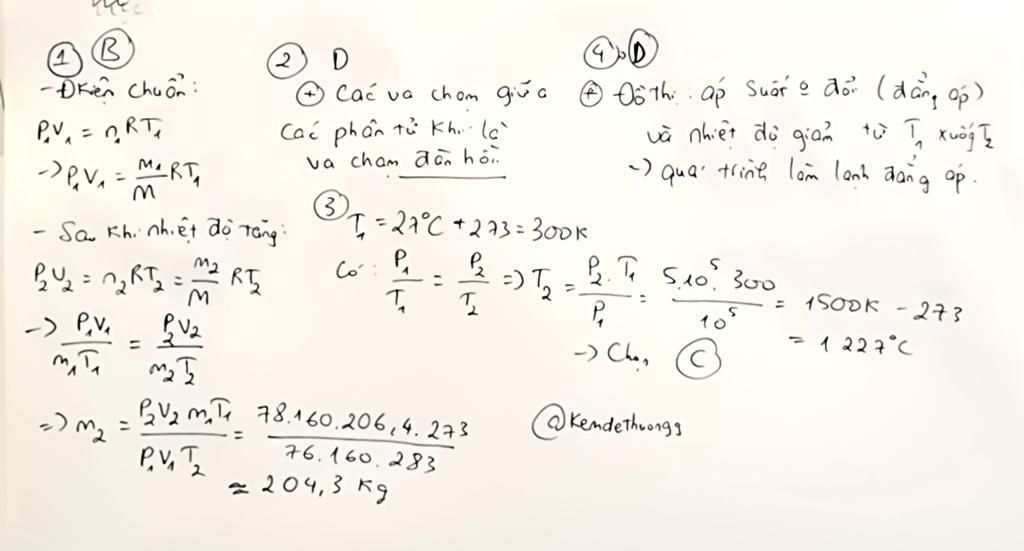 ① Ⓑ
- Đkiện chuẩn:
P₁V₁ = n₁RT₁
-> P₁V₁ = m₁/M RT₁
- Sau khi nhiệt độ tăng:
P₂V₂ = n₂RT₂ = m₂/M RT₂
-> P₁V₁/m₁T₁ = P₂V₂/m₂T₂
=> m₂ = P₂V₂m₁T₁/P₁V₁T₂ = 78.160.206,4.273/76.160.283
≈ 204,3 kg
② D
⊕ Các va chạm giữa
các phân tử khí là
va chạm đàn hồi.
③ T₁ = 27°C + 273 = 300K
Có: P₁/T₁ = P₂/T₂ => T₂ = P₂.T₁/P₁ = 5.10⁵.300/10⁵ = 1500K - 273
= 1227°C
-> Chọn Ⓒ
④ D
⊕ Đồ thị: áp suất o đổi (đẳng áp)
và nhiệt độ giảm từ T₁ xuống T₂
-> quá trình làm lạnh đẳng áp.
@Kemdethuongg